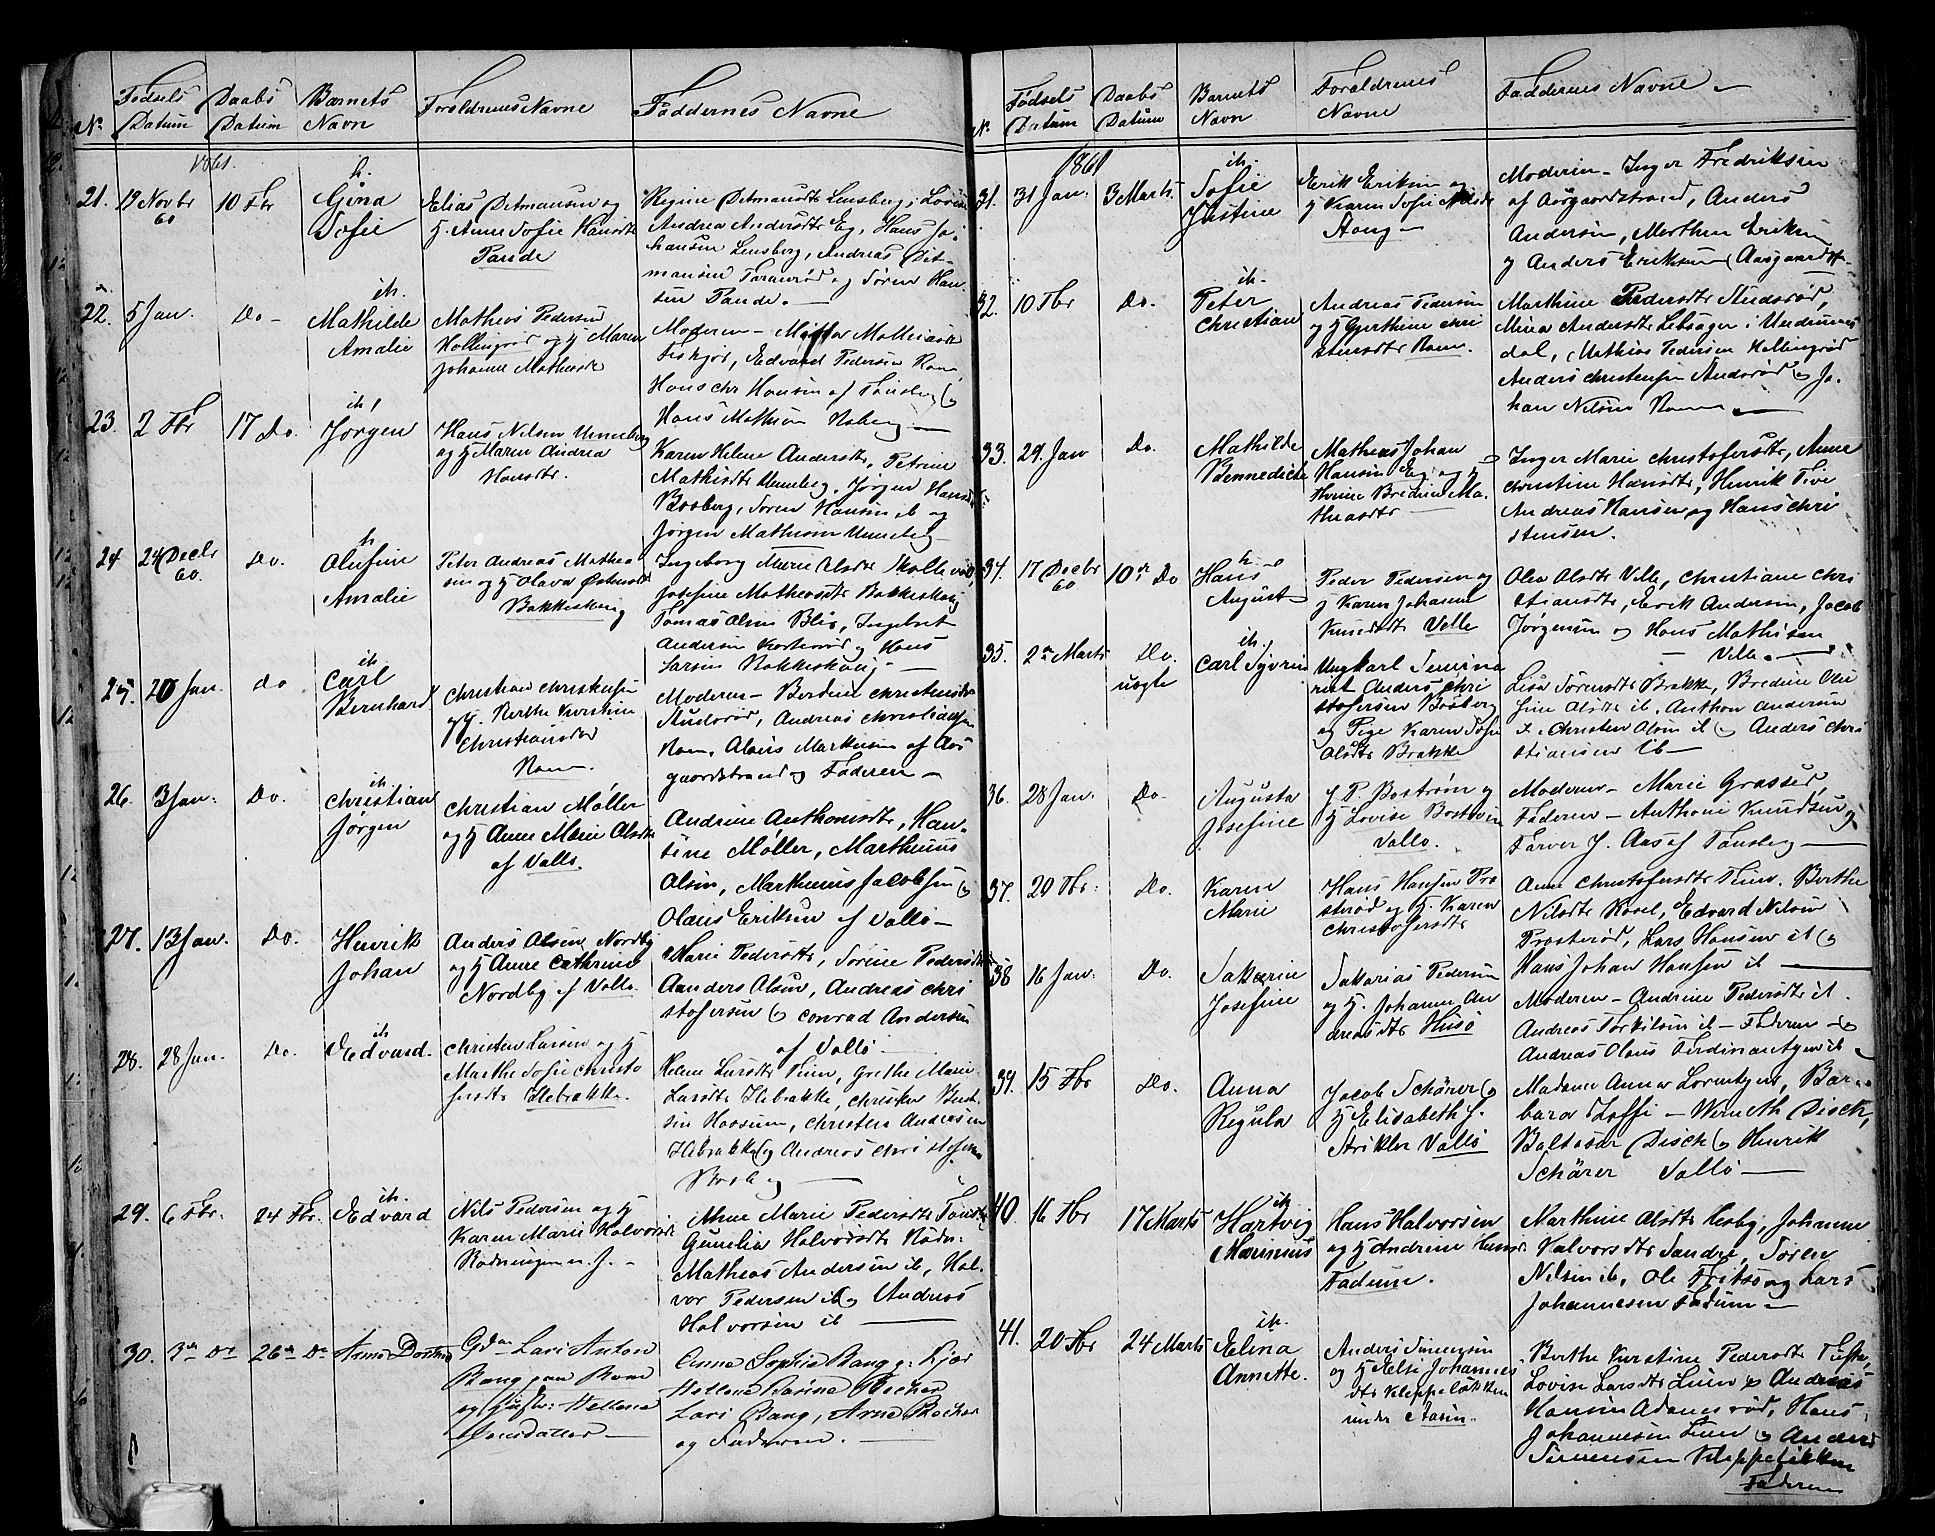 No. Fødsels Datum Daabs Datum Barnets Navn Forældrenes Navne Faddernes Navne
1861.
21. 19 Novbr 60 10 Fbr h. Gina Sofie
Elias Ditmansen og
Anne Sofie Hansdtr
Tande
Regine Ditmansdtr Lensberg,
Andrea Andersdtr Eg, Hans Jo-
hansen Lensberg, Andreas Dit-
mansen og Søren Han-
sen Tande.
22. 5 Jan. Do ih. Mathilde Amalie
Mathias Pedersen
Hollingrød og Maren
Johanne Mathisdtr
Moderen - Mathea
Edvard Pedersen Ram
Hans Chr Hansen af Tønsberg og
Hans Mathisen Roberg
23. 2 Fbr 17 Do. ih. Jørgen
Hans Nilsen Unneberg
og Maren Andrea
Hansdtr.
Karen Helene Andersdtr, Petrine
Mathisdtr Unneberg, Jørgen Hansen
Basberg, Søren Hansen ib og
Jørgen Mathisen Unneberg
24 24 Decbr 60. Do. h Olufine Amalie
Peter Andreas Mathea
sen og Olava
Bakkeskaug
Ingeborg Marie Olsdtr
Josefine Matheasdtr Bakkeskaug
Tomas Olsen Ingebret
Andersen og Hans
Larsen Bakkeskaug
25. 20 Jan. Do ih. Carl Bernhard
Christian Christensen
og Berthe Kirstine
Christiansdtr
Ram
Moderen - Berdine Christensdtr
Audsrød, Andreas Christiansen
Ram, Olaus Markusen af Aas
gaardstrand og Faderen -
26. 3 Jan: Do. ih. Christian Jørgen
Christian Møller
og Anne Marie Olsdtr
af Vallø.
Andrine Anthonisdtr, Han-
sine Møller, Marthinus
Olsen, Marthinus Jacobsen og
Olaus Eriksen af Vallø -
27. 13 Jan. Do. Henrik Johan
Anders Olsen Nordby
og Anne Cathrine
Nordby af Vallø.
Marie Pedersdtr, Sorine Pedersdtr
Aanders Olsen, Andreas Chri
stofersen og Conrad Andersen
af Vallø
28. 28 Jan. Do. ih. Edvard.
Christen Larsen og
Marthe Sofie Christo
fersdtr Ilebrække.
Helene Larsdtr Grethe Marie
Larsdtr Ilebrække, Christen
Christen Andersen
Ilebrække og Andreas Christofersen
Basberg
29. 6 Fbr. 24 Fbr. ih. Edvard
Nils Pedersen og
Karen Marie Halvorsdtr
Rødningen n. J. -
Anne Marie Pedersdtr
Gunelia Halvorsdtr Rødn:
Mathias Andersen ib, Hal-
vor Pedersen ib og Andreas
Halvorsen ib
30. 3de Do 26de Do Anna Dorthea
Gdm Lars Anton
Bang paa Ram
og Hustr: Hellena
Anna Sophia Bang
Hellena Becher
Lars Bang, Arne Becher
og Faderen.
No. Fødsels Datum Daabs Datum Barnets Navn Forældrenes Navne Faddernes Navne -
1861
31. 31 Jan. 3 Marts. ih. Sofie Justine
Erik Eriksen og
Karen Sofie Nilsdtr
Stang -
Moderen - Inger Fredriksen
af Aasgaardstrand, Anders
Andersen, Morthen Eriksen
og Anders Eriksen Aasgaardstr.
32. 10 Fbr Do. ih. Peter Christian
Andreas Pedersen
og Gurthine Chri
stensdtr Ram.
Marthine Pedersdtr Audsrød,
Mina Andersdtr Lebsager i Undrums
dal, Mathias Pedersen Hollingrød
Anders Christensen Audsrød og Jo-
han Nilsen Ram
33. 29. Jan Do. Mathilde Bennedicte
Mathias Johan
Hansen Eg og
Bredine Ma-
thiasdtr
Inger Marie Christofersdtr, Anne
Christine Hansdtr, Henrik
Andreas Hansen og Hans Chri
stensen.
34. 17 Decbr 60 10de Do h. Hans August
Peder Pedersen og
Karen Johanne
Knudsdtr Velle
Olea Olsdtr Velle, Christiane Chri
stiansdtr, Erik Andersen, Jacob
Jørgensen og Hans Mathisen
Velle.
35. 2den Marts Do. uægte ih. Carl Syverin
Ungkarl Semina
rist Anders Chri
stofersen Basberg
og Pige Karen Sofie
Olsdtr Brække
Lisa Sørensdtr Brække, Bredine Olu
fine Olsdtr ib. Anthon Andersen
Christen Olsen ib og Anders Chri
stiansen ib -
36. 28 Jan. Do. Augusta Josefine
J. P. Bostrøm og
Lovise Bostrøm
Vallø.
Moderen - Marie
Faderen - Anthoni Knudsen og
Farver J. Aas af Tønsberg
37. 20 Fbr. Do. Karen Marie
Hans Hansen Pro
sterød og Karen
Christofersdtr
Anne Christofersdtr Berthe
Nilsdtr Rosel, Edvard Nilsen
Prosterød, Lars Hansen ib og
Hans Johan Hansen ib
38 16 Jan. Do. Sakarine Josefine
Sakarias Pedersen
og Johanne An
dreasdtr Husø
Moderen - Andrine Pedersdtr ib.
Andreas Torkilsen ib - Faderen - og
Andreas Olaus Ferdinantsen ib
39. 15 Fbr Do. Anna Regula
Jacob Schärer og
Elisabeth f.
Strikler Vallø
Madame Anna Lorentzen, Bar-
bara Werneth Disch,
Baltasar Disch og Henrik
Schärer Vallø
40. 16 Fbr 17 Marts ih Hartvig Marinius
Hans Halvorsen
og Andrine Hansd
Fadum.
Marthine Olsdtr Hesby, Johanne
Halvorsdtr Søren
Nilsen ib, Ole og Lars
Johannesen Fadum -
41. 20 Fbr 24 Marts ih. Elina Annette.
Anders Simensen
og Else Johannes
dtr Kleppeløkken
under Aasen.
Berthe Kirstine Pedersdtr Tufte,
Lovise Larsdtr Lien, Andreas
Hansen Adamsrød, Hans
Johannesen Lien og Anders
Simensen Kleppeløkken
Faderen